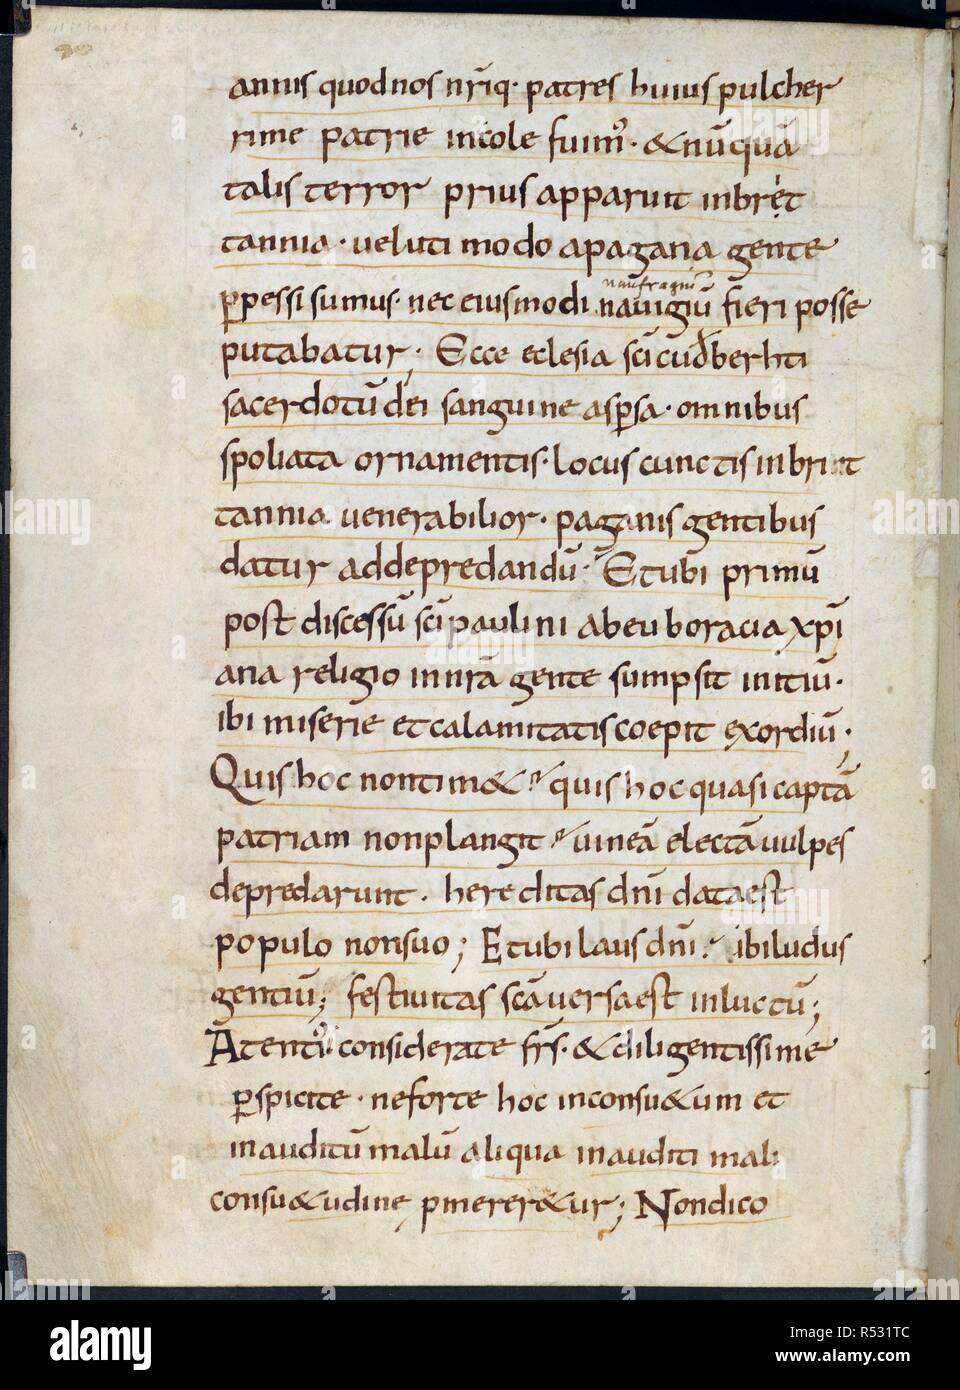 annis quod nos nr̄iq· patres huius pulcher
rime patrie incole fuim᾿· & nū quā
talis terror prius apparuit in brit
tannia · veluti modo a pagana gente
ꝑpessi sumus · nec eiusmodi naufragiū navigiū fieri posse
putabatur; Ecce eclesia sc̄i cuðberhti
sacerdotū dei sanguine aspersa · omnibus
spoliata ornamentis · locus cunctis in brit
tannia venerabilior · paganis gentibus
datur ad depredandū · Et ubi primū
post discessū sc̄i paulini ab euboracia xp̄i
ana religio in nr̄a gente sumpsit initiū ·
ibi miserie et calamitatis coepit exordiū ·
Quis hoc non tim& · quis hoc quasi captā
patriam non plangit · vineā electā vulpes
depredarunt · hereditas dn̄i data est
populo non suo; Et ubi laus dn̄i · ibi ludus
gentiū; festivitas sc̄a versa est in luctū;
Atenti᾿ considerate fr̄s · & diligentissime
ꝑspicite · ne forte hoc inconsu&um et
inauditū malū aliqua inauditi mali
consu&udine pmerer&ur; Non dico
alamy
Image ID: R531TC
www.alamy.com